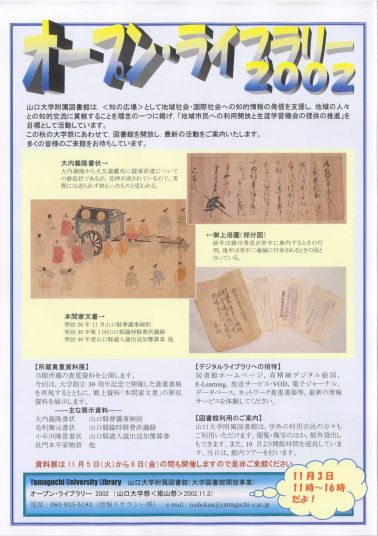 オープン・ライブラリー
2002
山口大学附属図書館は、＜知の広場＞として地域社会・国際社会への知的情報の発信を支援し、地域の人々
との知的交流に貢献することを理念の一つに掲げ、「地域市民への利用開放と生涯学習機会の提供の推進」を
目標として活動しています。
この秋の大学祭にあわせて、図書館を開放し、最新の活動をご案内いたします。
多くの皆様のご来館をお待ちしています。
大内義隆書状→
大内義隆から大友義鑑宛に援軍派遣について
の督促状であるが、花押が消されているので、実
際には送られず終わったものと思われる。
←御上洛図（部分図）
前半は徳川秀忠が宮中に参内するときの行
列、後半は帝が二條城に行幸されるときの図と
なっている。
本間家文書→
明治26年11月山口縣會議事細則
明治30年第1回山口縣臨時縣會決議録
明治30年度山口縣歳入歳出追加豫算書 他
【所蔵貴重資料展】
当館所蔵の貴重資料を公開します。
今回は、大学創立30周年記念で開催した貴重書展
を再現するとともに、郷土資料「本間文書」の新収
資料を展示します。
――主な展示資料――
大内義隆書状 山口縣會議事細則
毛利輝元書状 山口縣臨時縣會決議録
小早川隆景書状 山口縣歳入歳出追加豫算書
長門本平家物語 他
【デジタルライブラリへの招待】
図書館ホームページ、高精細デジタル絵図、
E-Learning、放送サービス・VOD、電子ジャーナル、
データベース、ネットワーク貴重書展等、最新の情報
サービスを体験してください。
【図書館利用のご案内】
山口大学附属図書館は、学外の利用市民の方々も
ご利用いただけます。閲覧・複写のほか、館外貸出し
もできます。また、10月より開館時間を延長していま
す。当日は、館内ツアーを行います。
資料展は11月5日（火）から8日（金）の間も開催しますので是非ご来館ください。
Yamaguchi University Library 山口大学附属図書館（大学図書館開放事業）
オープン・ライブラリー 2002 （山口大学祭＜姫山祭＞2002.11.3）
電話：083-933-5183（情報リテラシー係） e-mail：toshokan@yamaguchi-u.ac.jp
11月3日
11時～16時
だよ！